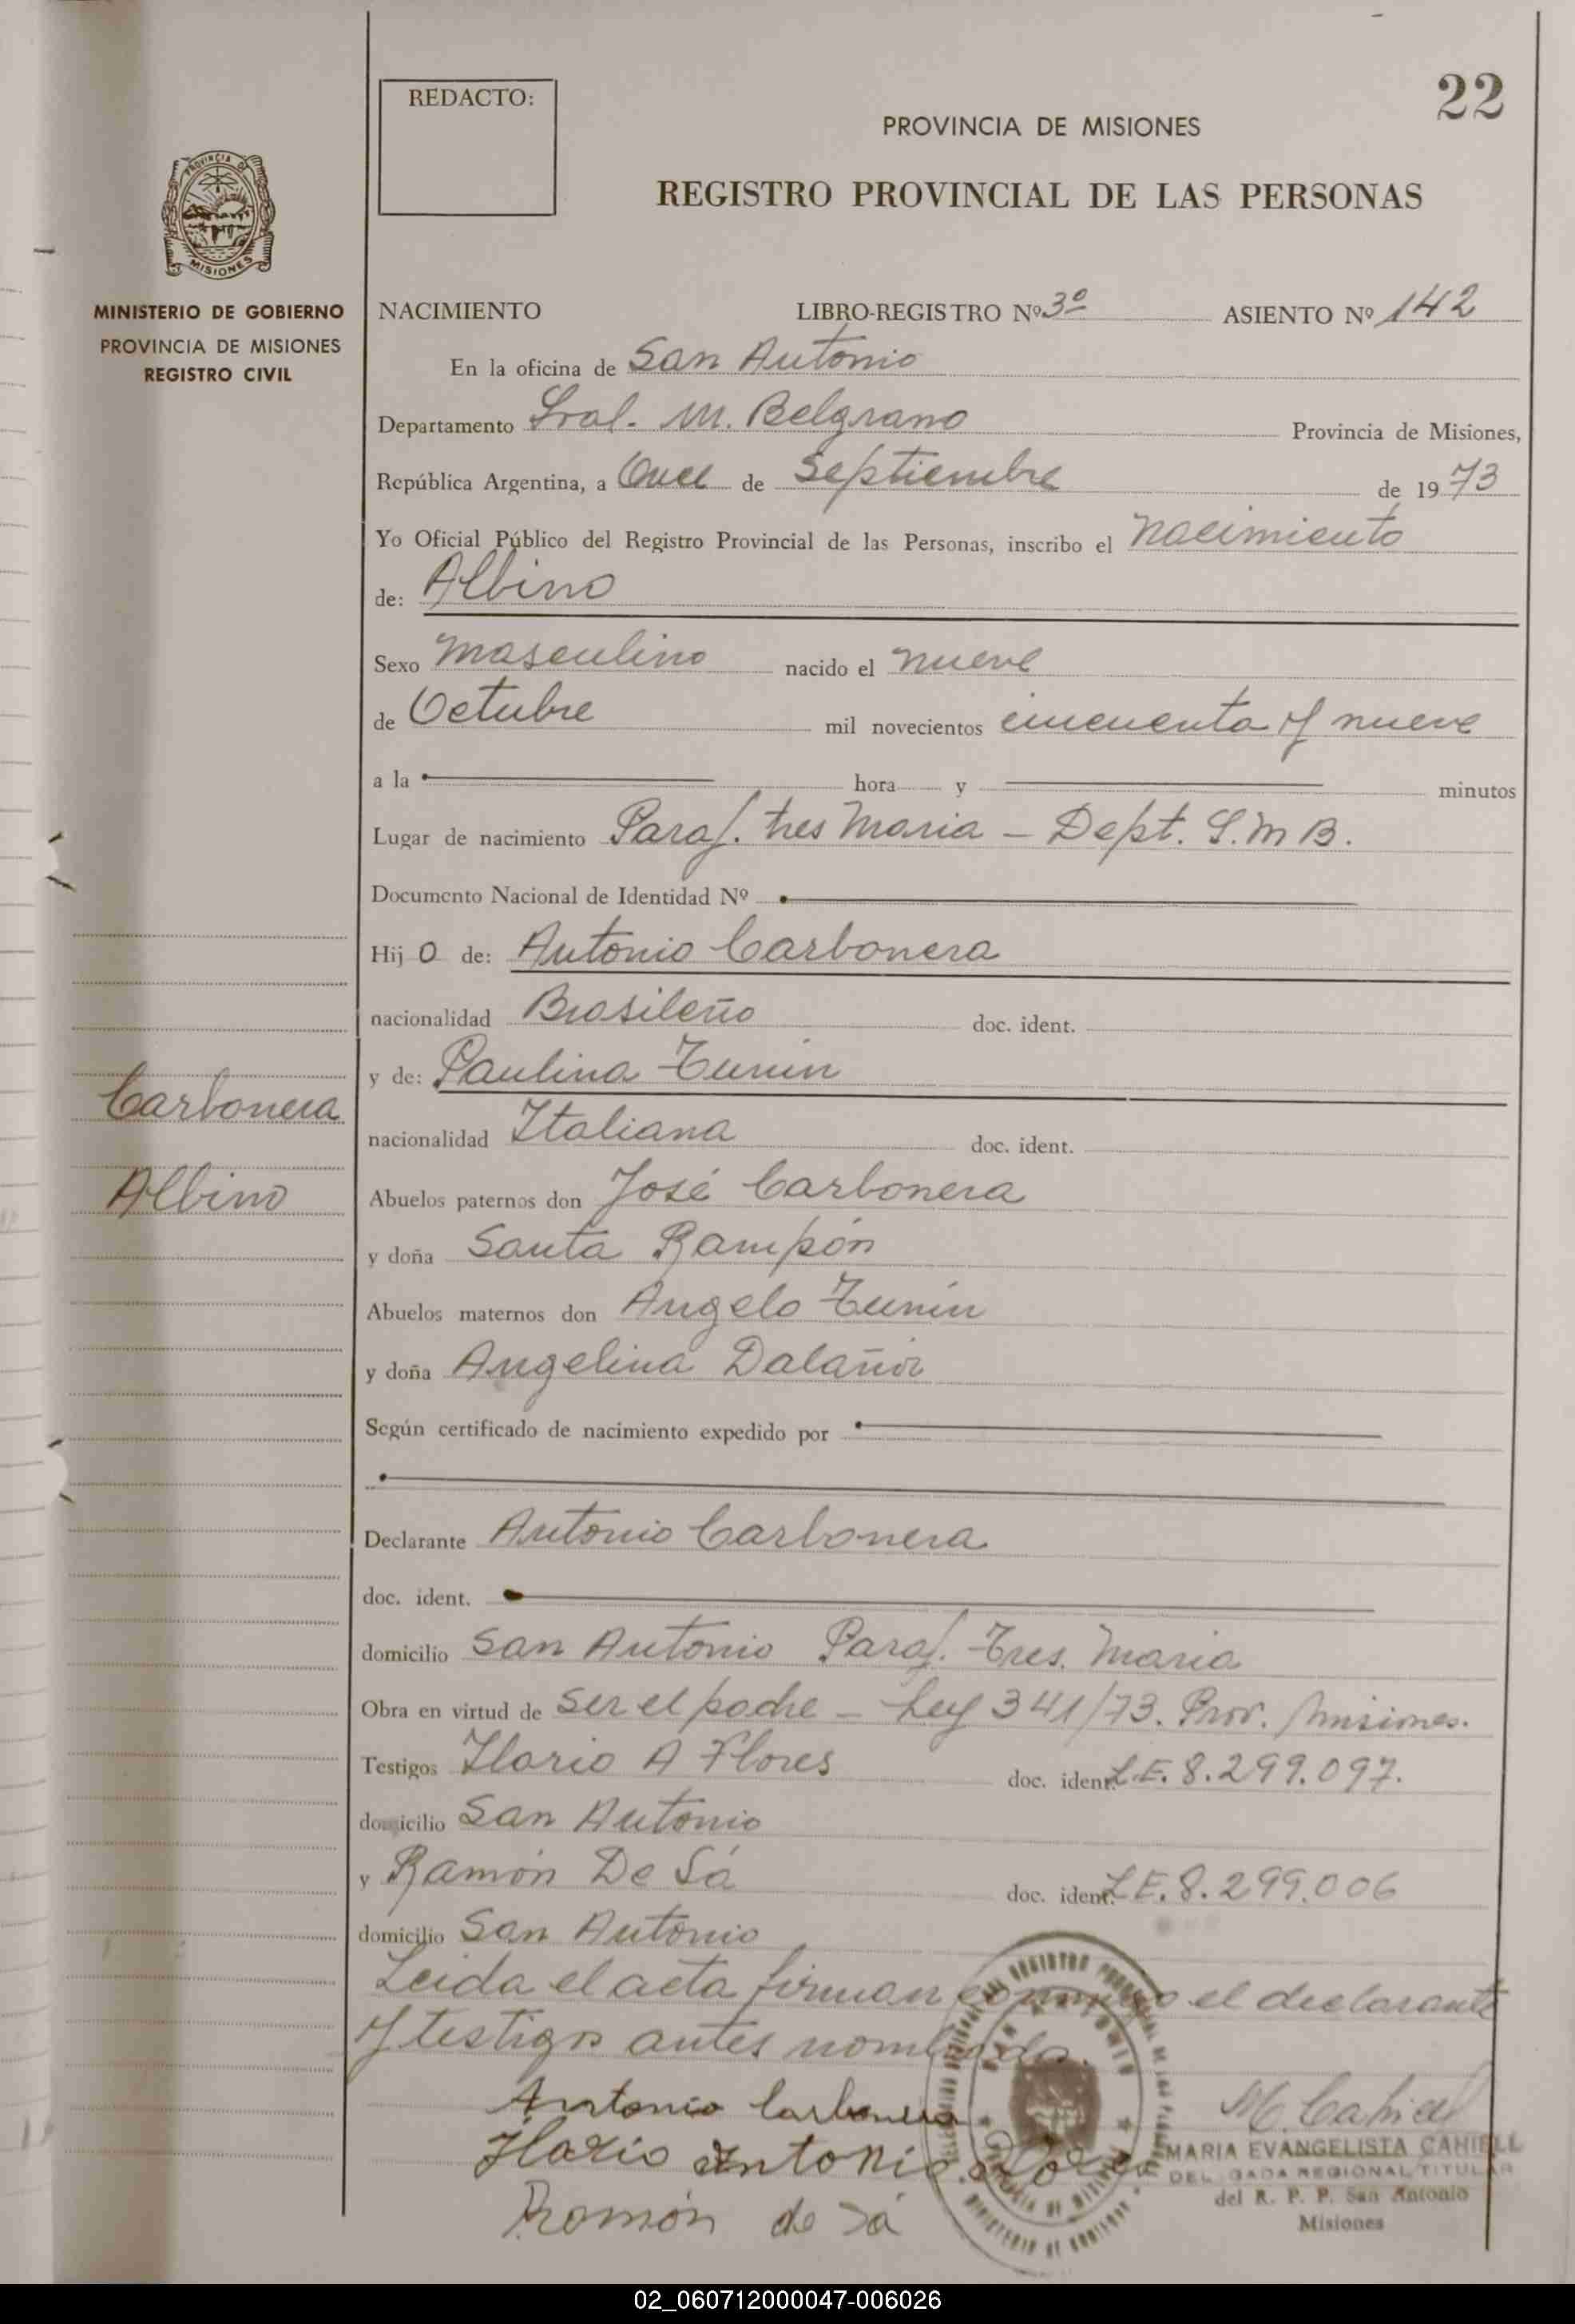 22
REDACTO:
PROVINCIA DE MISIONES
REGISTRO PROVINCIAL DE LAS PERSONAS
PROVINCIA DE
MISIONES
MINISTERIO DE GOBIERNO
PROVINCIA DE MISIONES
REGISTRO CIVIL
NACIMIENTO LIBRO-REGISTRO Nº 3º ASIENTO Nº 142
En la oficina de San Antonio
Departamento Gral. M. Belgrano Provincia de Misiones,
República Argentina, a Once de Septiembre de 1973
Yo Oficial Público del Registro Provincial de las Personas, inscribo el nacimiento
de: Albino
Sexo masculino nacido el nueve
de Octubre mil novecientos cincuenta y nueve
a la hora y minutos
Lugar de nacimiento Paraj. tres Maria - Dept. G.M B.
Documento Nacional de Identidad Nº
Hij o de: Antonio Carbonera
nacionalidad Brasileño doc. ident.
y de: Paulina Tunin
Carbonera
nacionalidad Italiana doc. ident.
Albino
Abuelos paternos don José Carbonera
y doña Santa Rampón
Abuelos maternos don Angelo Tunin
y doña Angelina
Según certificado de nacimiento expedido por
Declarante Antonio Carbonera
doc. ident.
domicilio San Antonio Paraj. Tres. Maria
Obra en virtud de ser el padre - Ley 341/73. Prov. Misiones.
Testigos Ilario A Flores doc. ident. L.E. 8.299.097.
domicilio San Antonio
y Ramón De Sá doc. ident. L.E. 8.299.006
domicilio San Antonio
Leida el acta firman conmigo el declarante
y testigos antes nombrado.
Antonio Carbonera
Ilario Antonio Flores
Ramón de Sá
M. Cahiell
MARIA EVANGELISTA CAHIELL
DELEGADA REGIONAL TITULAR
del R. P. P. San Antonio
Misiones
02_060712000047-006026